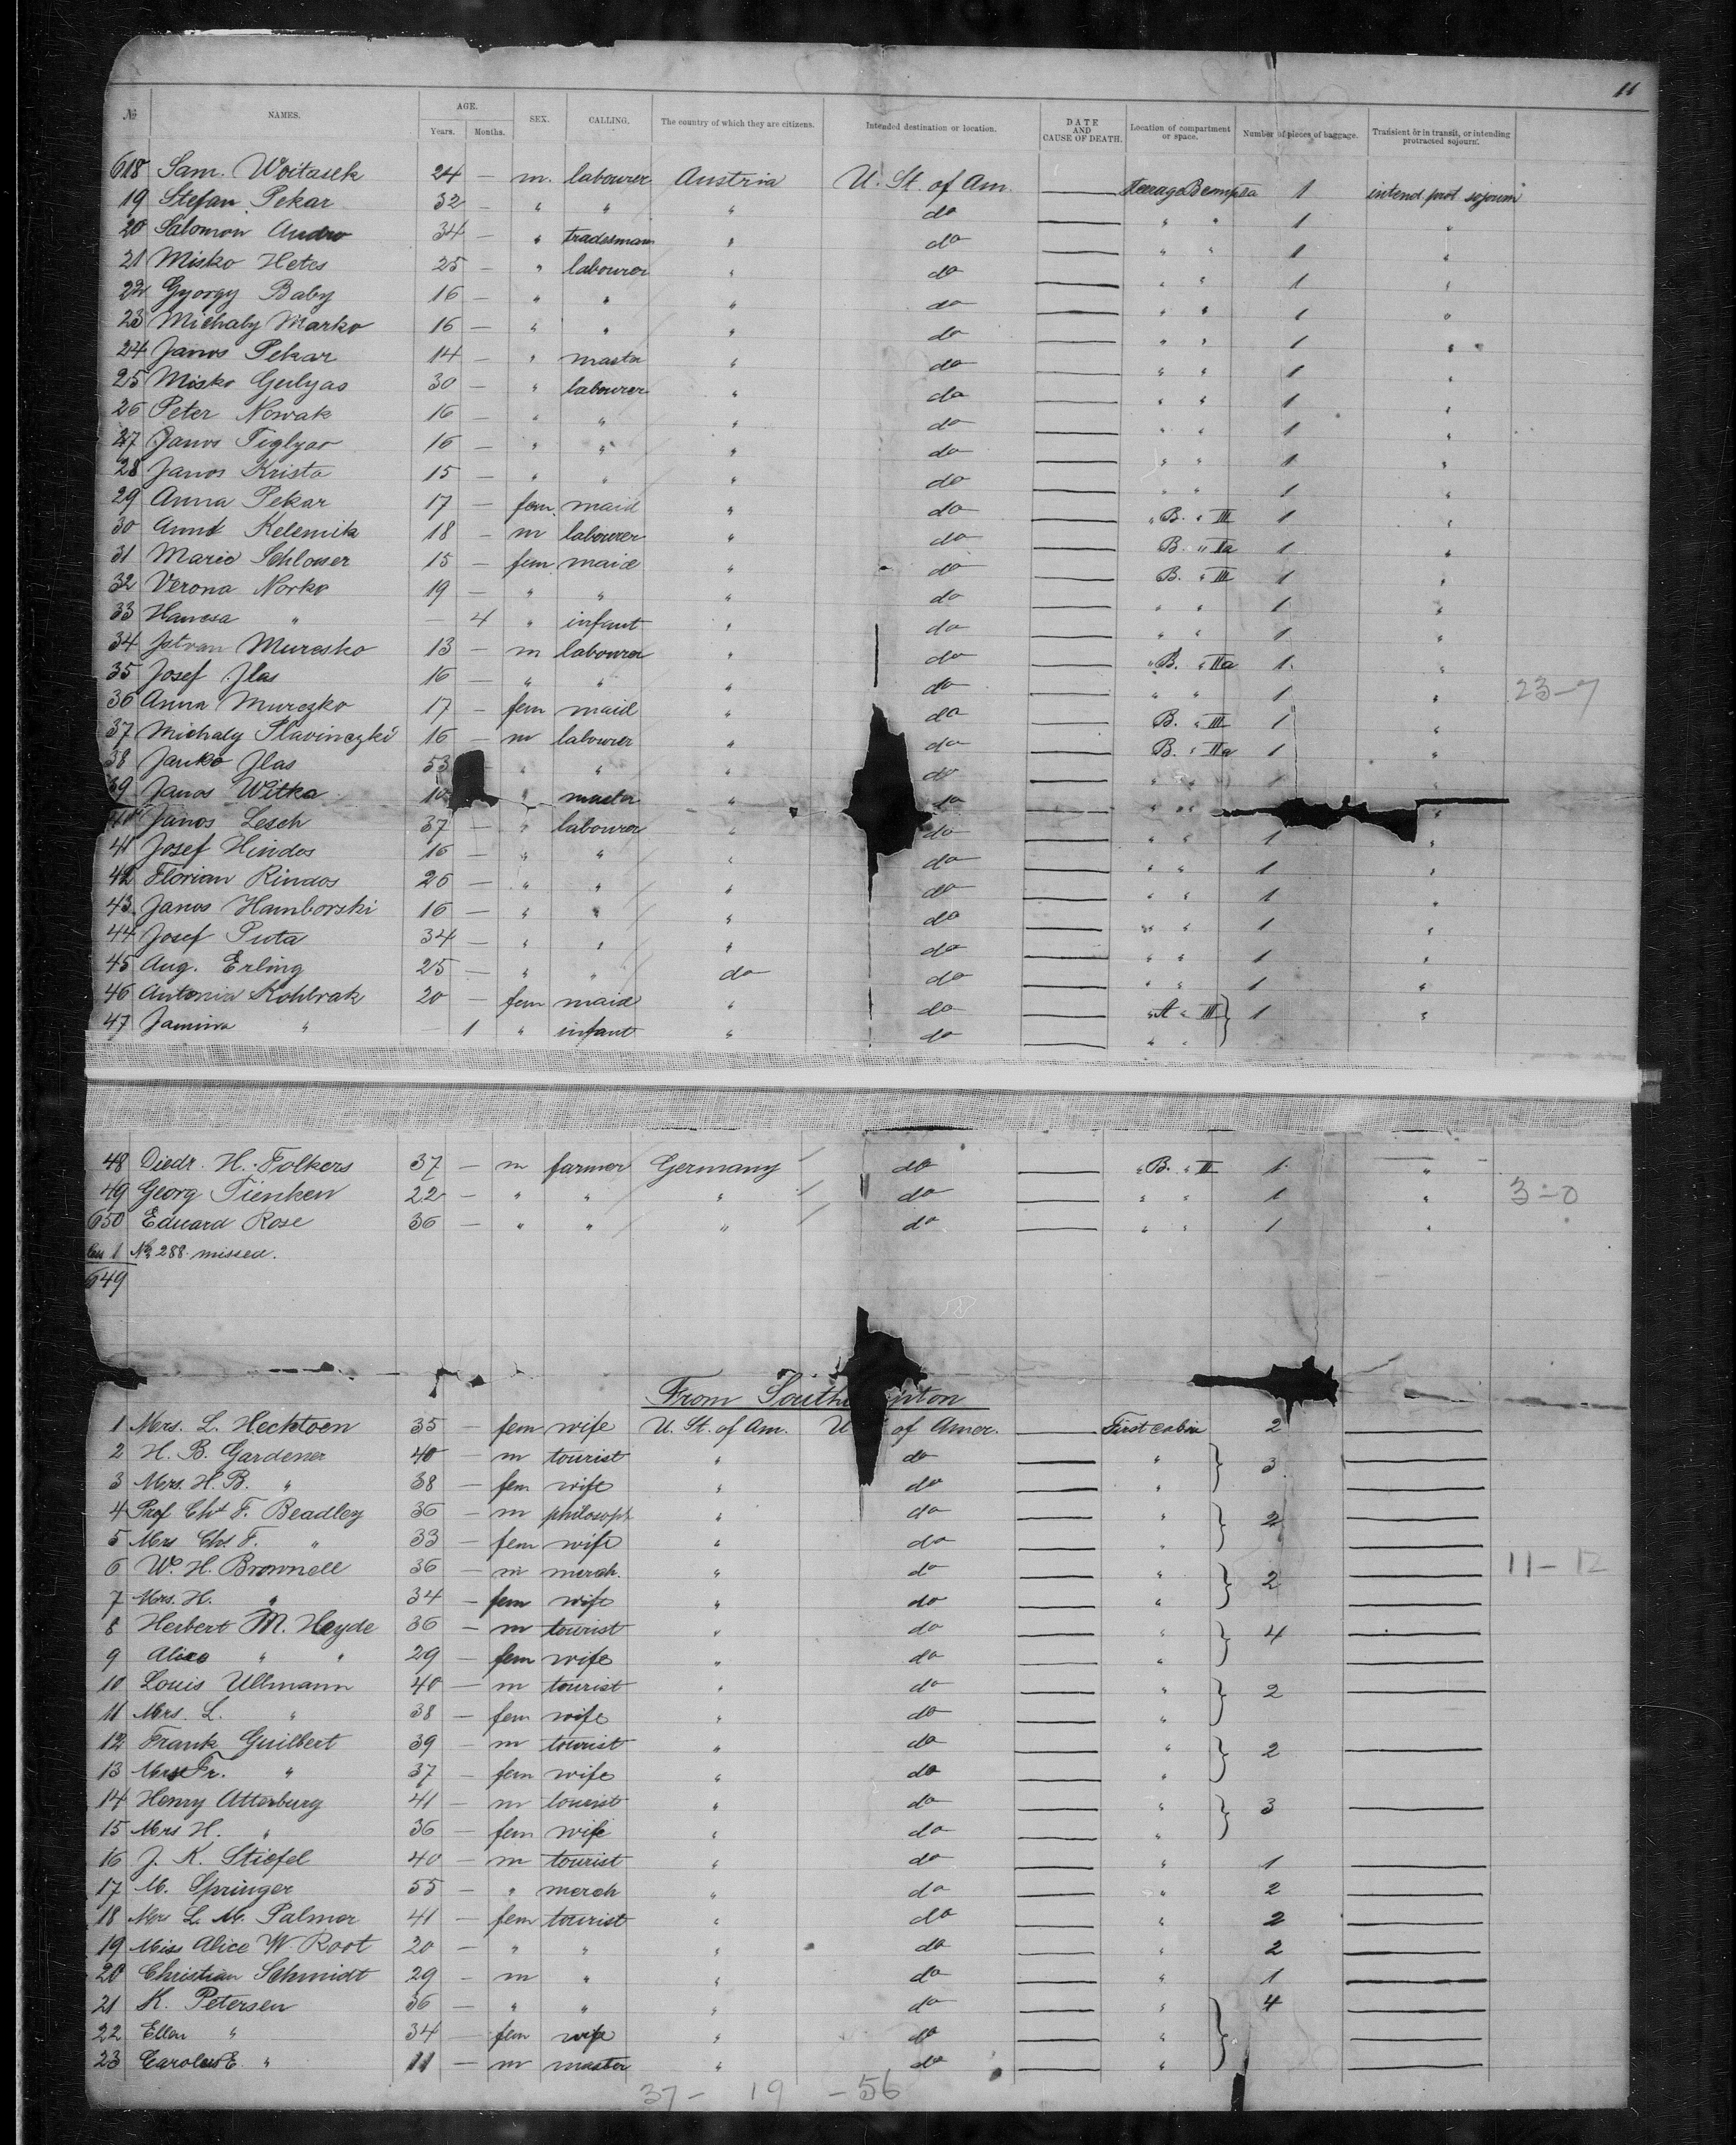 11
№ NAMES. AGE. Years. Months. SEX. CALLING. The country of which they are citizens. Intended destination or location. DATE AND CAUSE OF DEATH. Location of compartment or space. Number of pieces of baggage. Transient or in transit, or intending protracted sojourn.
618 Sam. Woitasek 24 — m. labourer Austria U. St. of Am. — 1 intend prot sojourn
19 Stefan Pekar 32 — " " " do — " " 1 "
20 Salomon Andro 34 — " tradesman " do — " " 1 "
21 Misko Hetes 25 — " labourer " do — " " 1 "
22 Gyorgy Baby 16 — " " " do — " " 1 "
23 Michaly Marko 16 — " " " do — " " 1 "
24 Janos Pekar 14 — " master " do — " " 1 "
25 Misko Gulyas 30 — " labourer " do — " " 1 "
26 Peter Nowak 16 — " " " do — " " 1 "
27 Janos Tiglyar 16 — " " " do — " " 1 "
28 Janos Krista 15 — " " " do — " " 1 "
29 Anna Pekar 17 — fem. maid " do — " B. " III 1 "
30 Kelemik 18 — m labourer " do — B. " IIa 1 "
31 Marie Schlosser 15 — fem maid " do — B. " III 1 "
32 Verona Norko 19 — " " " do — " " 1 "
33 " — 4 " infant " do — " " 1 "
34 Istvan Muresko 13 — m labourer " do — " B. " IIa 1 "
35 Josef Ilas 16 — " " " do — " " 1 "
23-7
36 Anna Murczko 17 — fem maid " do — B. " III 1 "
37 Michaly Slavinczki 16 — m labourer " do — B. " IIa 1 "
38 Janko Ilas 53 " " " do — " " 1 "
39 Janos Witka 10 " master " do — " " "
40 Janos Lesch 37 — " labourer " do — " " 1 "
41 Josef Hindos 16 — " " " do — " " 1 "
42 Florian Rindos 26 — " " " do — " " 1 "
43 Janos Hamborski 16 — " " " do — " " 1 "
44 Josef Puta 34 — " " " do — " " 1 "
45 Aug. Erling 25 — " " do do — " " 1 "
46 Antonia Kohlrak 20 — fem maid " do — " A " III } 1 "
47 Jamina " 1 " infant " do — " "
48 Diedr. H. Folkers 37 — m farmer Germany do — " B. " II 1 "
49 Georg Tienken 22 — " " " do — " " 1 "
3-0
650 Eduard Rose 36 — " " " do — " " 1 "
less 1 № 288 missed.
649
From Southampton
1 Mrs. L. Hecktoen 35 — fem wife U. St. of Am. U of Amer. — First cabin 2 —
2 H. B. Gardener 40 — m tourist " do — " } 3 —
3 Mrs. H. B. " 38 — fem wife " do — " —
4 Prof Chs F. Beadley 36 — m philosoph " do — " } 2 —
5 Mrs Chs F. " 33 — fem wife " do — " —
6 W. H. Brownell 36 — m merch. " do — " } 2 —
11-12
7 Mrs. H. " 34 — fem wife " do — " —
8 Herbert M. Heyde 36 — m tourist " do — " } 4 —
9 Alice " " 29 — fem wife " do — " —
10 Louis Ullmann 40 — m tourist " do — " } 2 —
11 Mrs. L. " 38 — fem wife " do — "
12 Frank Guilbert 39 — m tourist " do — " } 2 —
13 Mrs Fr. " 37 — fem wife " do — "
14 Henry Atterbury 41 — m tourist " do — " } 3 —
15 Mrs H. " 36 — fem wife " do — "
16 J. K. Stiefel 40 — m tourist " do — " 1 —
17 M. Springer 55 — " merch " do — " 2 —
18 Mrs L. M. Palmer 41 — fem tourist " do — " 2 —
19 Miss Alice W. Root 20 — " " " do — " 2 —
20 Christian Schmidt 29 — m " " do — " 1 —
21 K. Petersen 36 — " " " do — " } 4 —
22 Ellen " 34 — fem wife " do — " —
23 " 11 — m master " do — " —
37- 19 -56